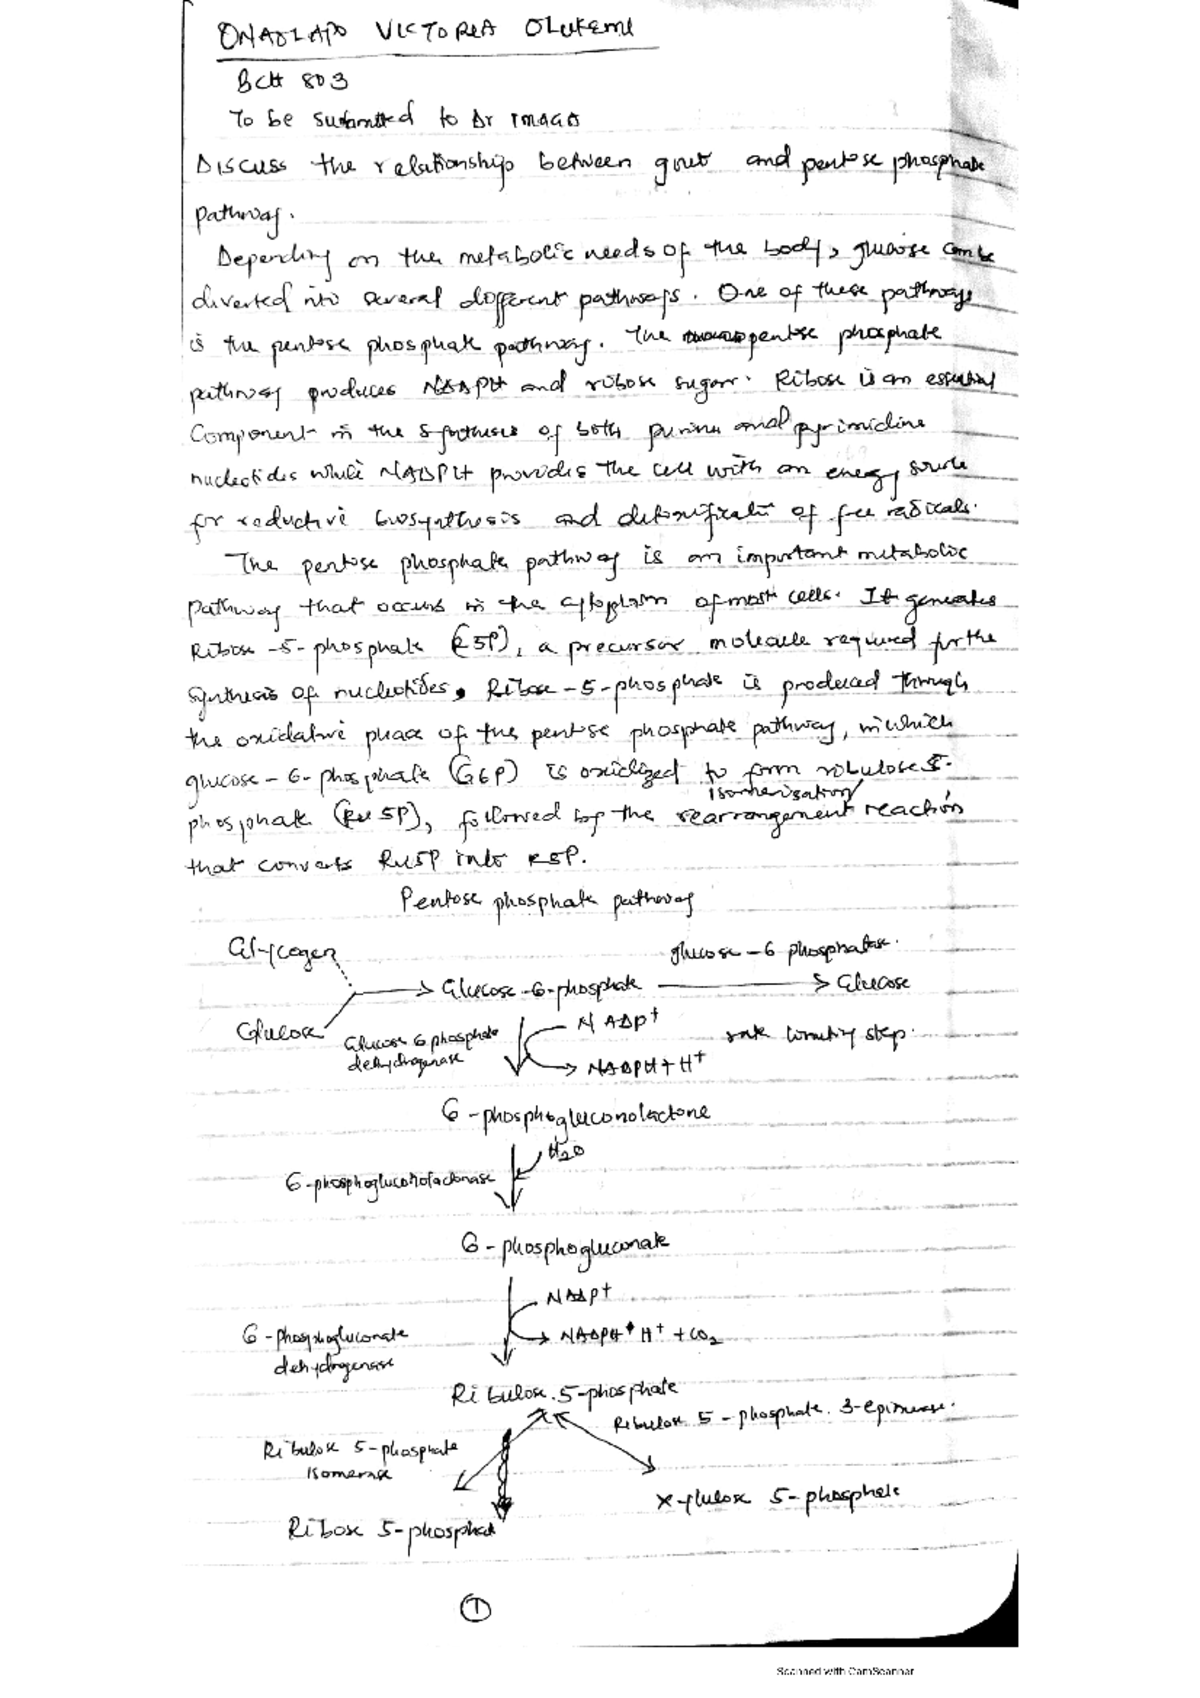 ONAOLAPO VICTORIA OLUKEMI
BCH 803
To be submitted to Dr IMAGA
Discuss the relationship between gout and pentose phosphate
pathway.
Depending on the metabolic needs of the body, glucose can be
diverted into several different pathways. One of these pathways
is the pentose phosphate pathway. The pentose phosphate
pathway produces NADPH and ribose sugar. Ribose is an essential
Component in the synthesis of both purine and pyrimidine
nucleotides while NADPH provides the cell with an energy source
for reductive biosynthesis and detoxification of free radicals.
The pentose phosphate pathway is an important metabolic
pathway that occurs in the cytoplasm of most cells. It generates
Ribose-5-phosphate (R5P), a precursor molecule required for the
synthesis of nucleotides. Ribose-5-phosphate is produced through
the oxidative phase of the pentose phosphate pathway, in which
glucose-6-phosphate (G6P) is oxidized to form ribulose 5-
isomerization
phosphate (Ru5P), followed by the rearrangement reaction
that converts Ru5P into R5P.
Pentose phosphate pathway
Glycogen
glucose-6 phosphatase.
Glucose-6-phosphate
Glucose
Glucose
Glucose 6 phosphate
dehydrogenase
NADP+
rate limiting step.
NADPH + H+
6-phosphogluconolactone
H2O
6-phosphogluconolactonase
6-phosphogluconate
NADP+
6-phosphogluconate
dehydrogenase
NADPH + H+ + CO2
Ribulose.5-phosphate
Ribulose 5-phosphate.3-epimerase.
Ribulose 5-phosphate
isomerase
Xylulose 5-phosphate
Ribose 5-phosphat
1
Scanned with CamScanner